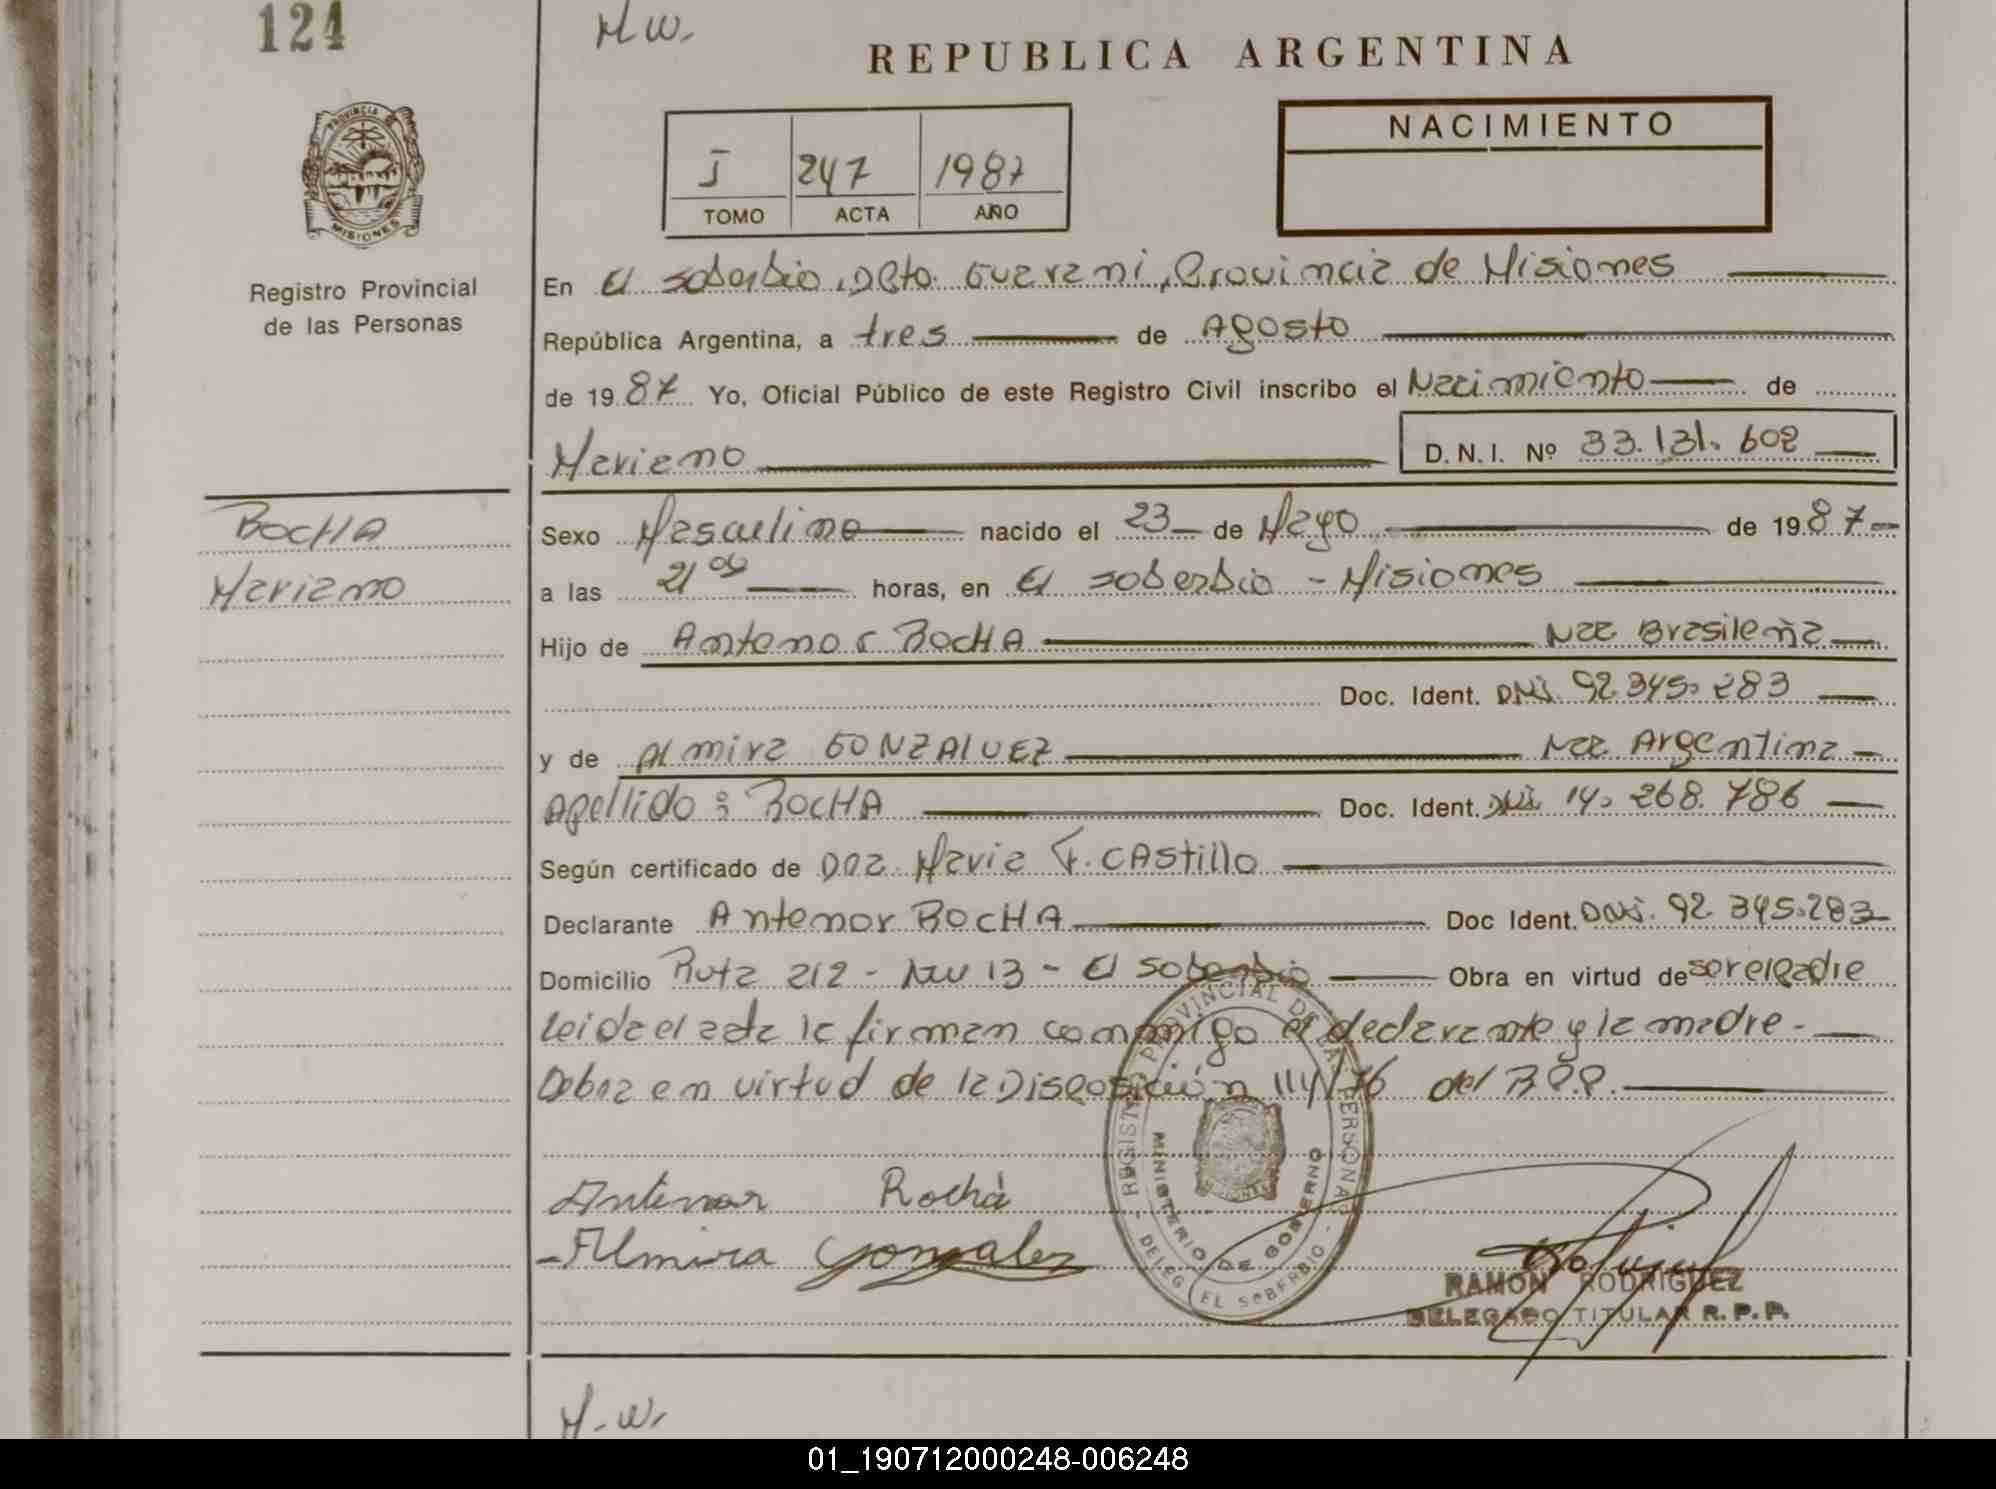 124
M W.
REPUBLICA ARGENTINA
PROVINCIA DE
MISIONES
Registro Provincial
de las Personas
I 247 1987
TOMO ACTA AÑO
NACIMIENTO
En El Soberbio, Dpto. Guarani, Provincia de Misiones
República Argentina, a tres de Agosto
de 1987 Yo, Oficial Público de este Registro Civil inscribo el Nacimiento de
Mariano
D.N.I. Nº 33.131.602
ROCHA
Mariano
Sexo Masculino nacido el 23 de Mayo de 1987
a las 21 00 horas, en El Soberbio - Misiones
Hijo de Antenor ROCHA Nac Brasileña
Doc. Ident. DNI. 92.345.283
y de Almira GONZALVEZ Nac Argentina
Apellido: ROCHA Doc. Ident. DNI. 14.268.786
Según certificado de Dra. Maria F. CAstillo
Declarante Antenor ROCHA Doc Ident. DNI. 92.345.283
Domicilio Ruta 212 - Km 13 - El Soberbio Obra en virtud de ser el padre
Leida el acta la firman conmigo el declarante y la madre.-
Labra en virtud de la Disposición 114/76 del R.P.P.
Antenor Rochá
- Almira Gonzalez
REGISTRO PROVINCIAL DE LAS PERSONAS
MINISTERIO DE GOBIERNO
- DELEG. EL SOBERBIO -
MISIONES
RAMON RODRIGUEZ
DELEGADO TITULAR R.P.P.
M-W.
01_190712000248-006248